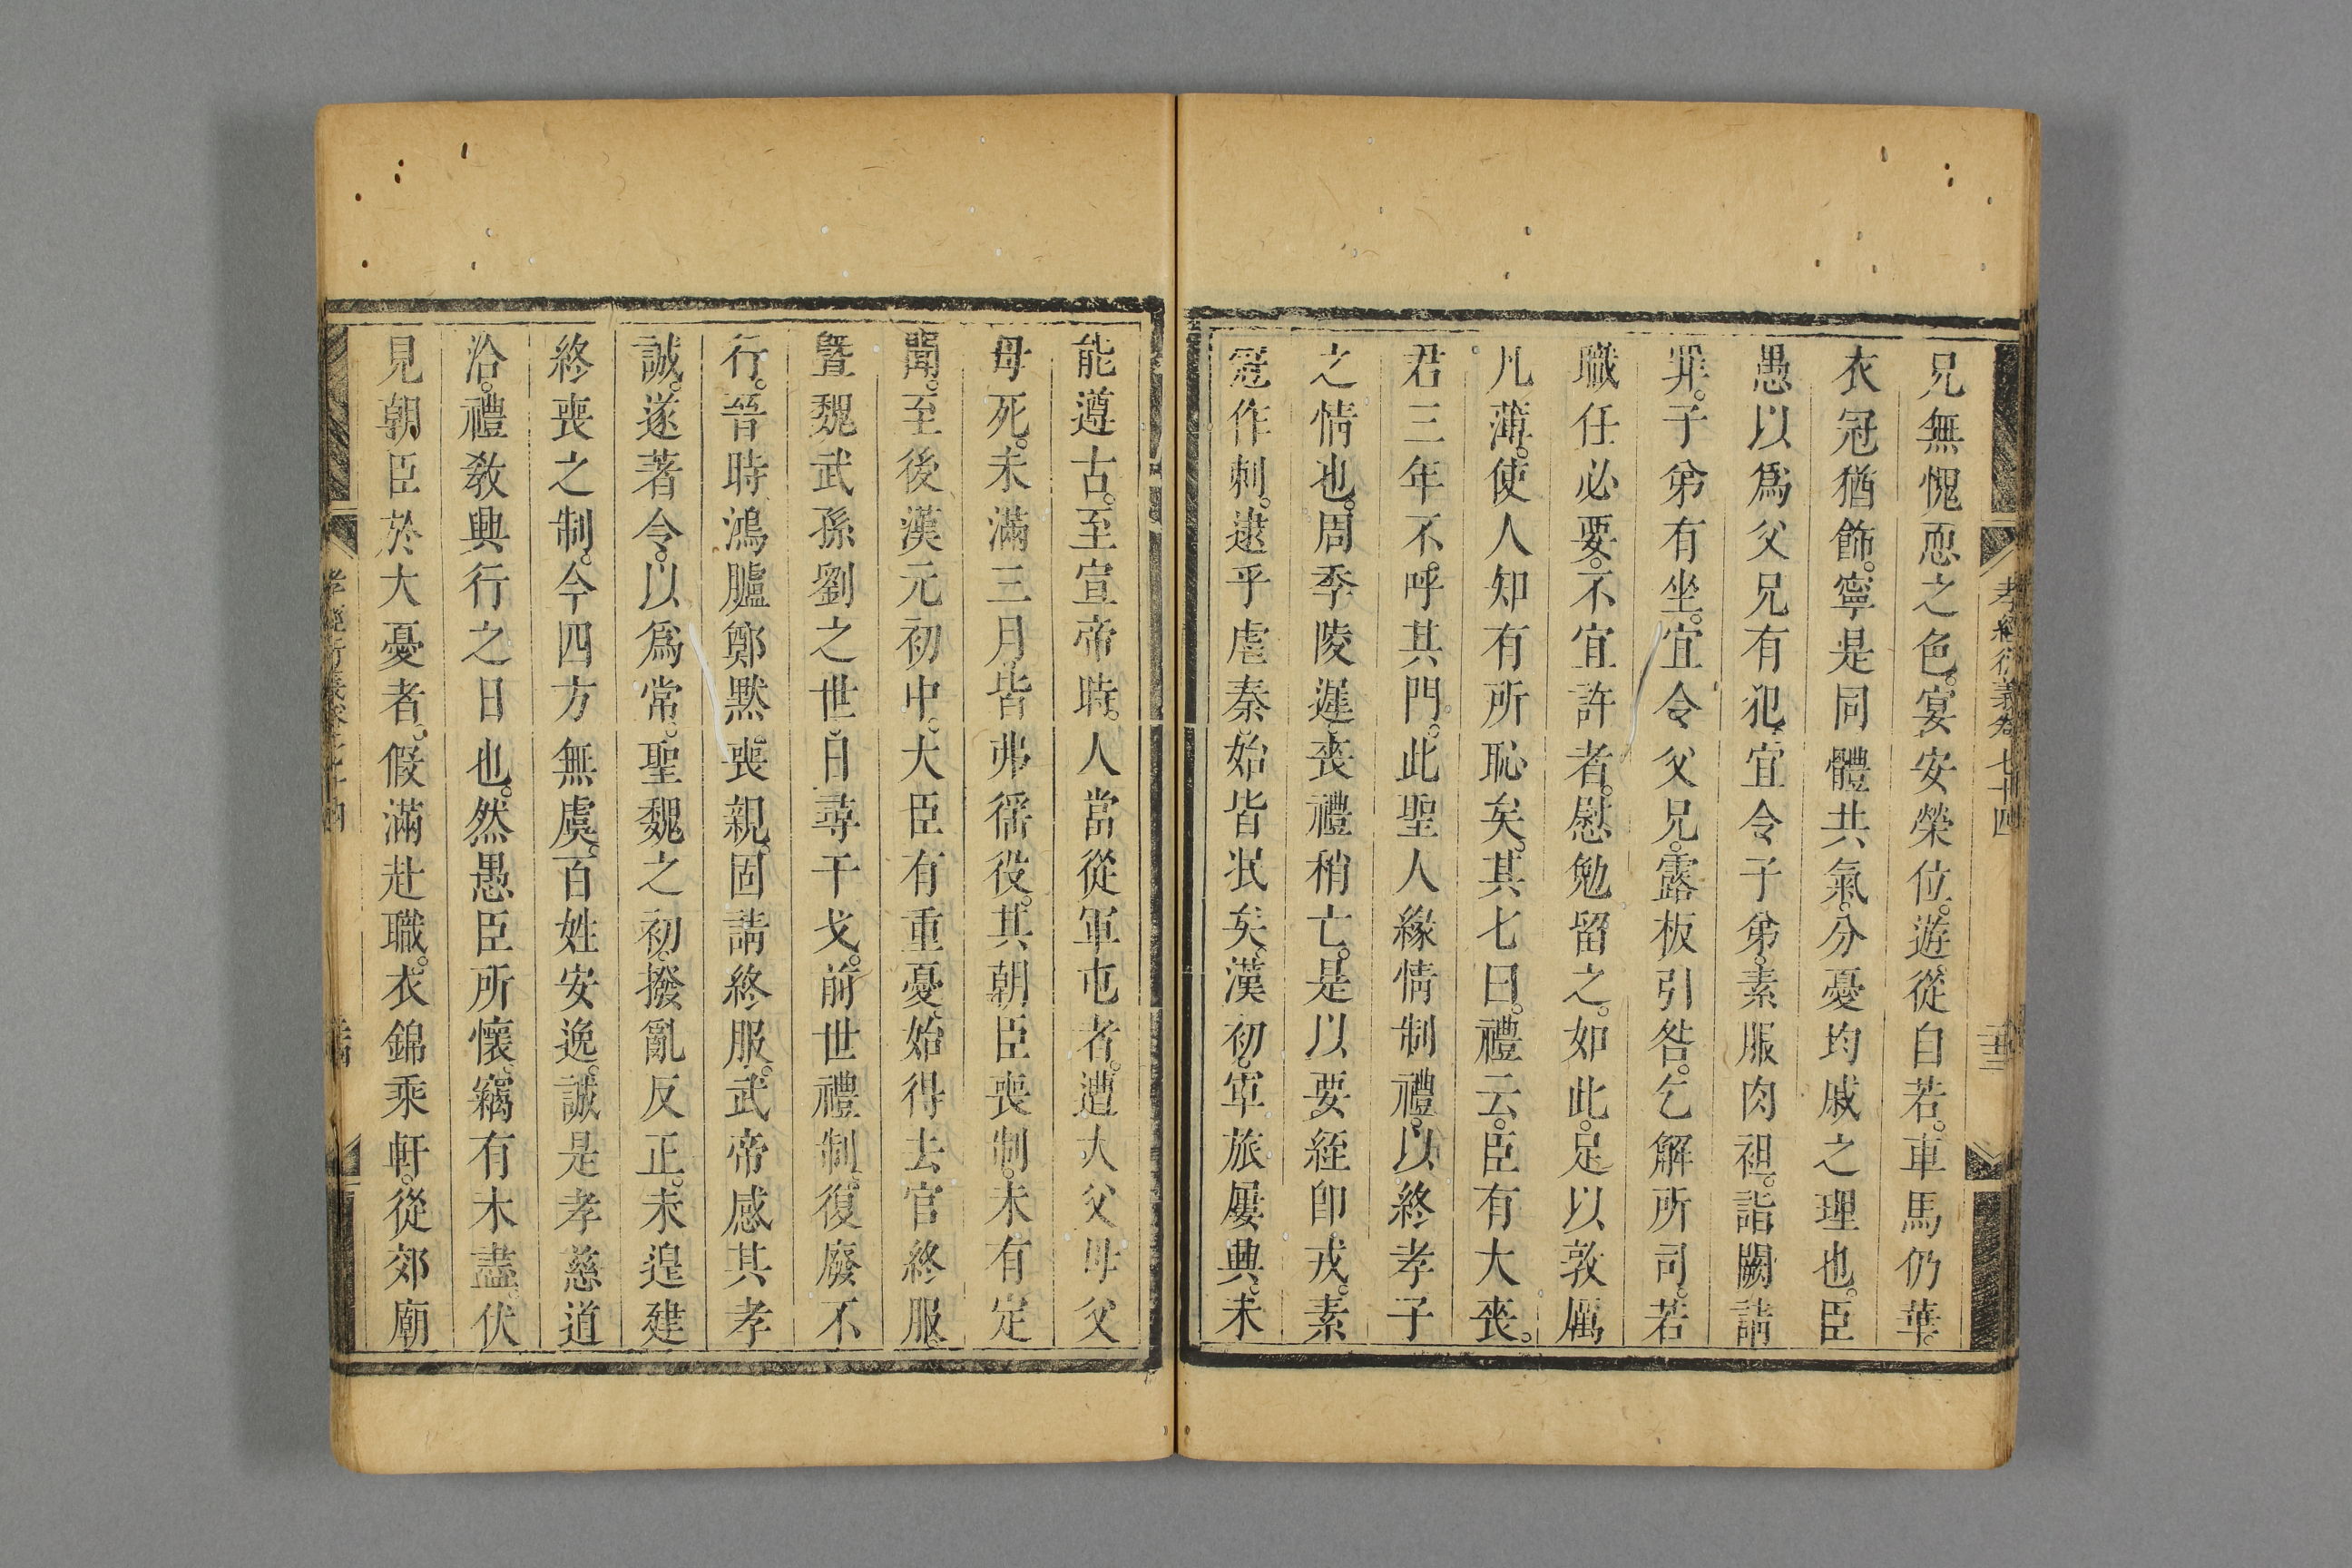 孝經衍義卷七十四
兄無愧恧之色。宴安榮位。遊從自若。車馬仍華。
衣冠猶飾。寧是同體共氣。分憂均戚之理也。臣
愚以爲父兄有犯。宜令子弟。素服肉袒。詣闕請
罪。子弟有坐。宜令父兄。露板引咎。乞解所司。若
職任必要。不宜許者。慰勉留之。如此。足以敦厲
凡薄。使人知有所恥矣。其七曰。禮云。臣有大喪。
君三年不呼其門。此聖人緣情制禮。以終孝子
之情也。周季陵遲。喪禮稍亡。是以要絰卽戎。素
冠作刺。逮乎虐秦。始皆泯矣。漢初。軍旅屢興。未
能遵古。至宣帝時。人當從軍屯者。遭大父母父
母死。未滿三月。皆弗徭役。其朝臣喪制。未有定
聞。至後漢元初中。大臣有重憂。始得去官終服。
曁魏武孫劉之世。日尋干戈。前世禮制。復廢不
行。晉時。鴻臚鄭默喪親。固請終服。武帝感其孝
誠。遂著令。以爲常。聖魏之初。撥亂反正。未遑建
終喪之制。今四方無虞。百姓安逸。誠是孝慈道
洽。禮敎興行之日也。然愚臣所懷。竊有未盡。伏
見朝臣於大憂者。假滿赴職。衣錦乘軒。從郊廟